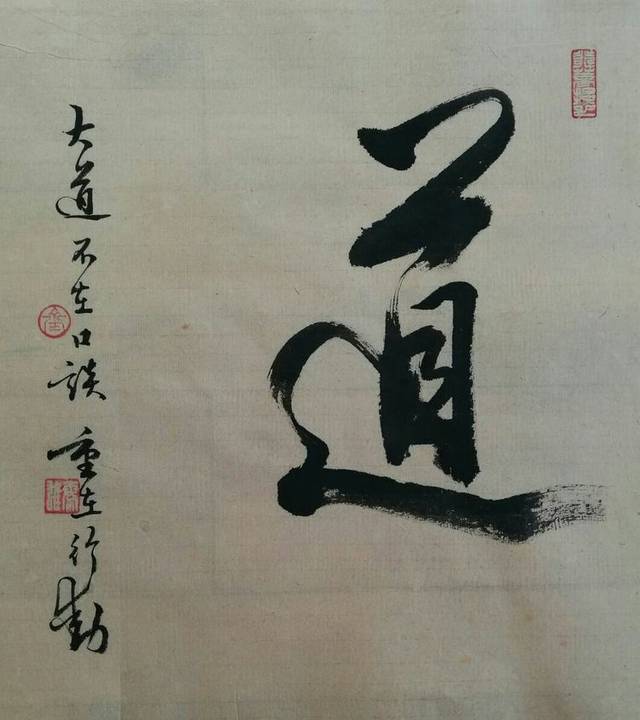 道
大道不在口談重在行動